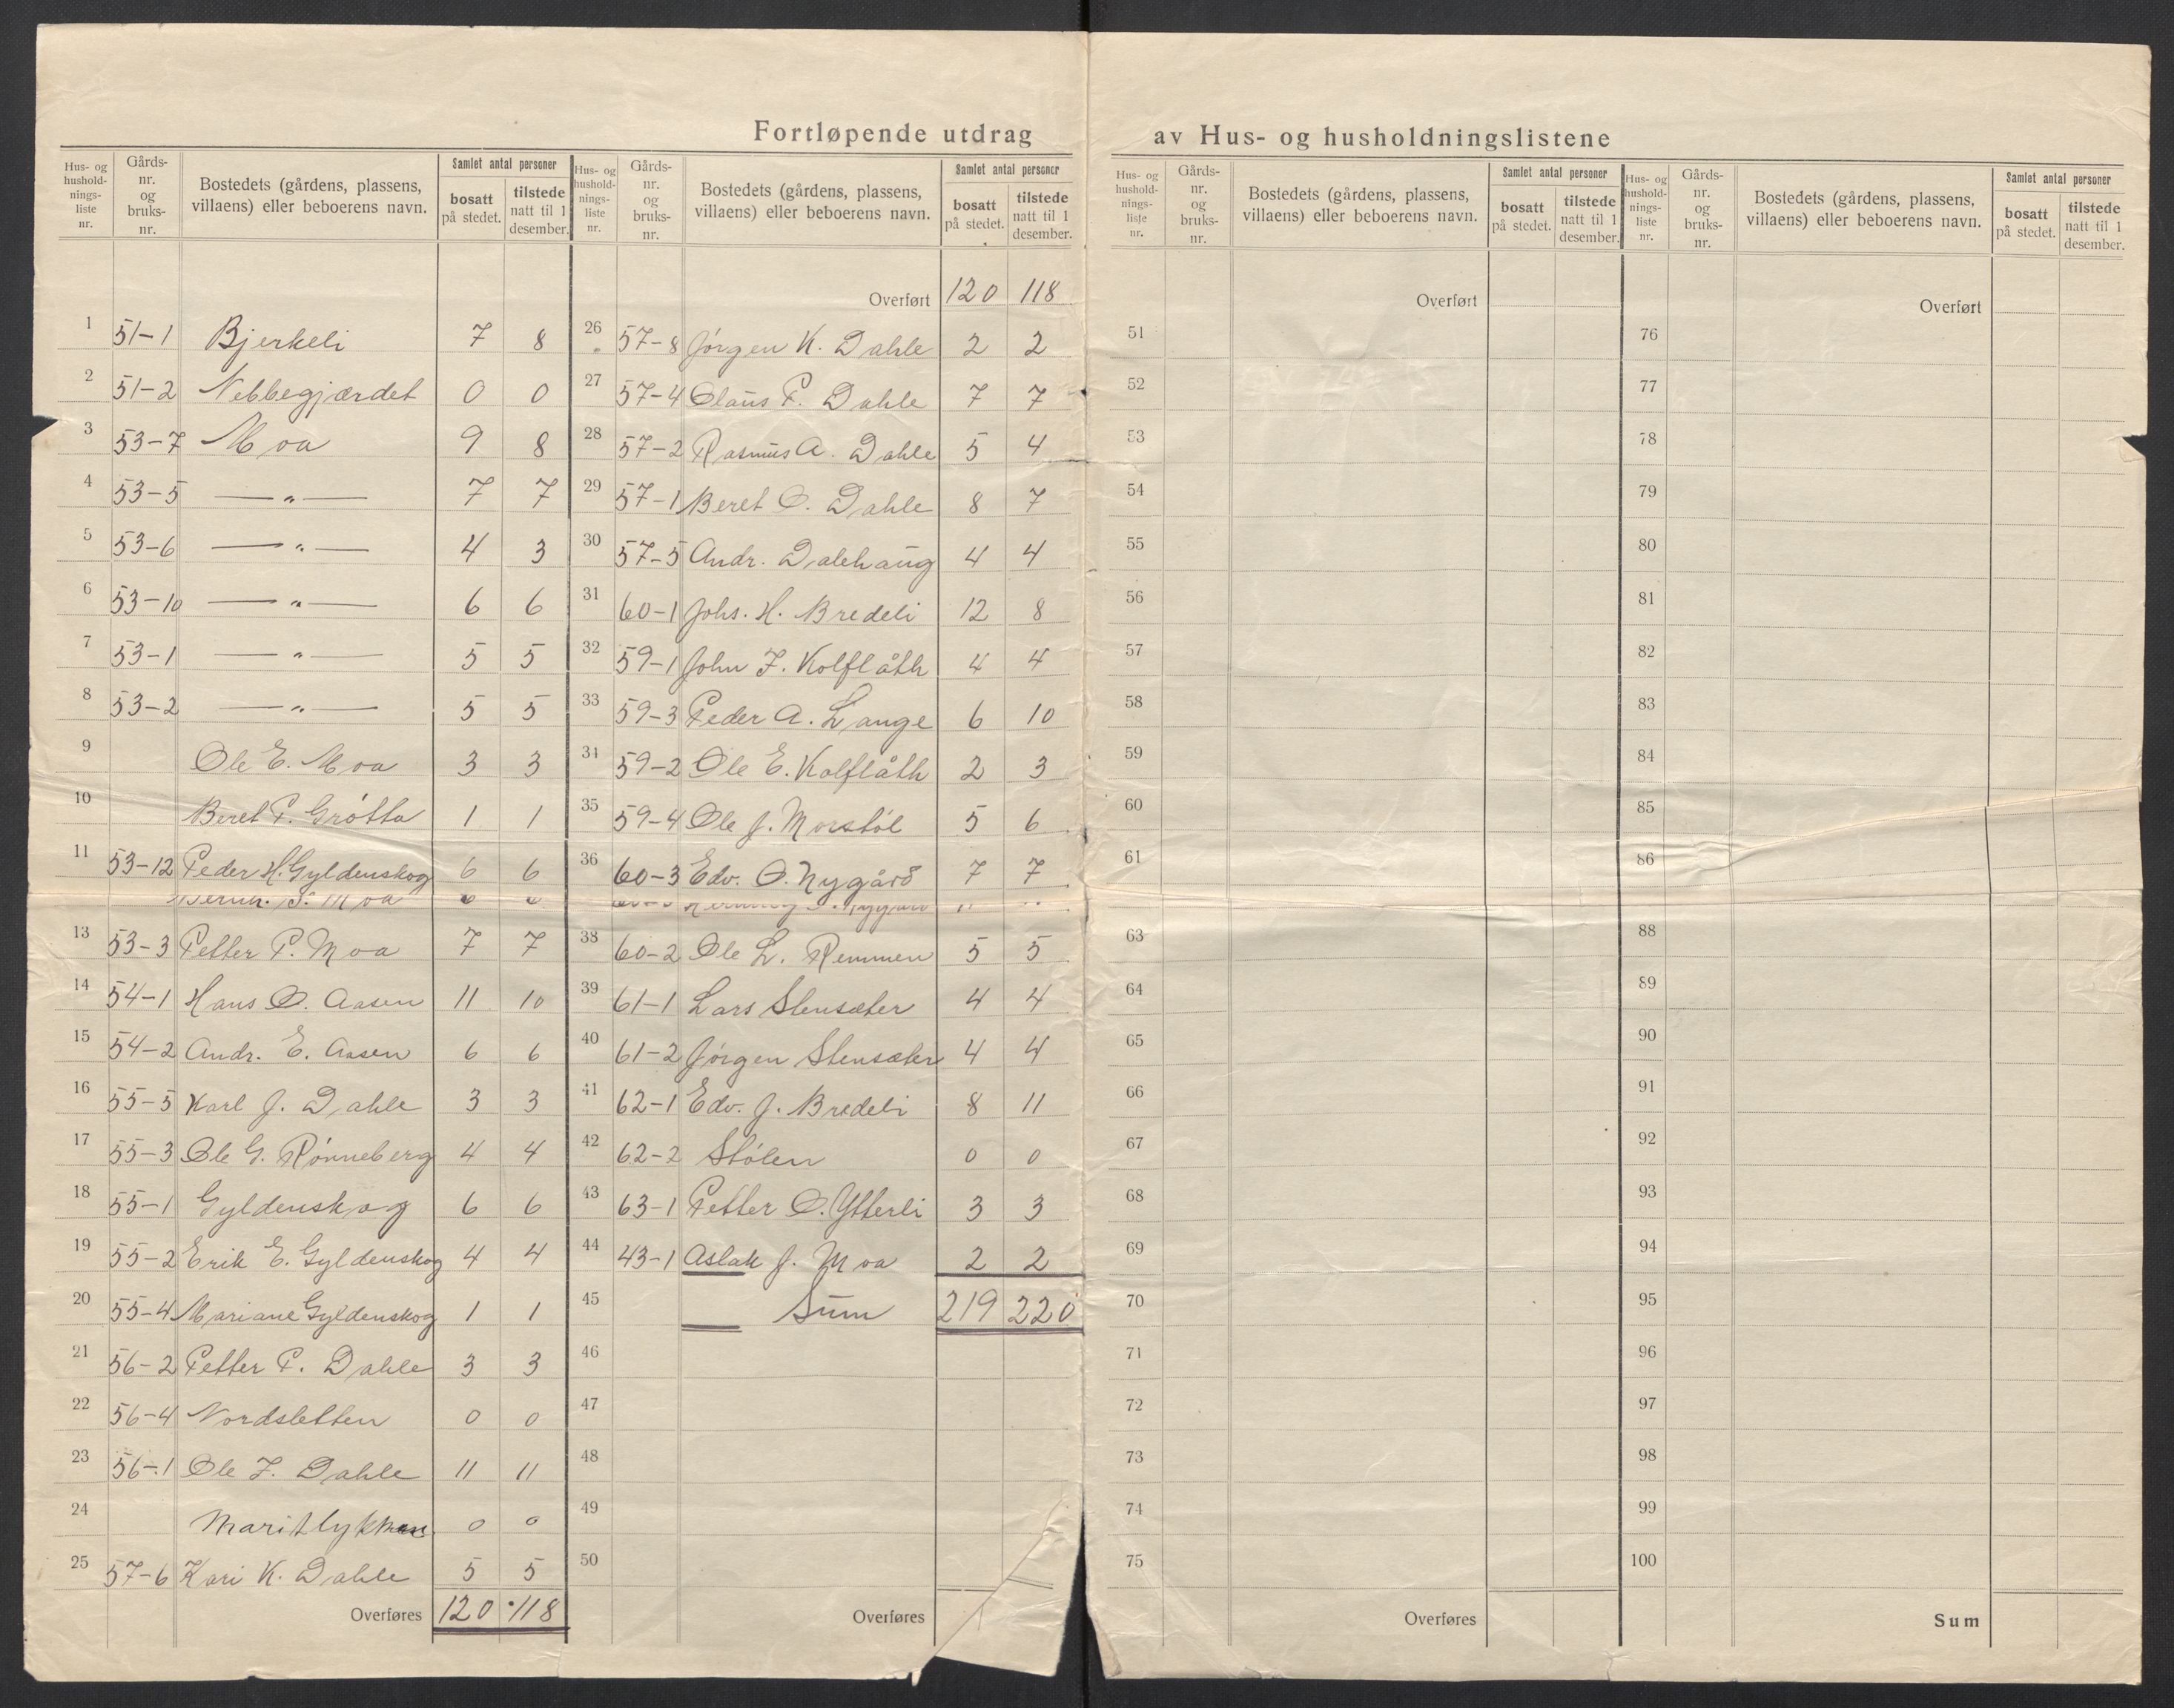 Fortløpende utdrag av Hus- og husholdningslistene
Hus- og hushold-nings-liste nr. Gårds-nr. og bruks-nr. Bostedets (gårdens, plassens, villaens) eller beboerens navn. Samlet antal personer bosatt på stedet. tilstede natt til 1 desember.
1 51-1 Bjerkeli 7 8
2 51-2 Nebbegjærdet 0 0
3 53-7 Moa 9 8
4 53-5 —„— 7 7
5 53-6 —„— 4 3
6 53-10 —„— 6 6
7 53-1 —„— 5 5
8 53-2 —„— 5 5
9 Ole E. Moa 3 3
10 Beret P. Grøtta 1 1
11 53-12 Peder H. Gyldenskog 6 6
Moa
13 53-3 Petter P. Moa 7 7
14 54-1 Hans O. Aasen 11 10
15 54-2 Andr. E. Aasen 6 6
16 55-5 Karl J. Dahle 3 3
17 55-3 Ole G. Rønneberg 4 4
18 55-1 Gyldenskog 6 6
19 55-2 Erik E. Gyldenskog 4 4
20 55-4 Mariane Gyldenskog 1 1
21 56-2 Petter P. Dahle 3 3
22 56-4 Nordsletten 0 0
23 56-1 Ole J. Dahle 11 11
24 Maritlykken. 0 0
25 57-6 Kari K. Dahle 5 5
Overføres 120 118
Hus- og hushold-nings-liste nr. Gårds-nr. og bruks-nr. Bostedets (gårdens, plassens, villaens) eller beboerens navn. Samlet antal personer bosatt på stedet. tilstede natt til 1 desember.
Overført 120 118
26 57-8 Jørgen K. Dahle 2 2
27 57-4 Olaus P. Dahle 7 7
28 57-2 Rasmus A. Dahle 5 4
29 57-1 Beret O. Dahle 8 7
30 57-5 Andr. Dalehaug 4 4
31 60-1 Johs. H. Bredeli 12 8
32 59-1 John J. Kolflåth 4 4
33 59-3 Peder A. Lange 6 10
34 59-2 Ole E. Kolflåth 2 3
35 59-4 Ole J. Morstøl 5 6
36 60-3 Edv. O. Nygård 7 7
38 60-2 Ole L. Remmen 5 5
39 61-1 Lars Stensæter 4 4
40 61-2 Jørgen Stensæter 4 4
41 62-1 Edv. J. Bredeli 8 11
42 62-2 Stølen 0 0
43 63-1 Petter O. Ytterli 3 3
44 43-1 Aslak J. Moa 2 2
45 Sum 219 220
46
47
48
49
50
Overføres
Hus- og hushold-nings-liste nr. Gårds-nr. og bruks-nr. Bostedets (gårdens, plassens, villaens) eller beboerens navn. Samlet antal personer bosatt på stedet. tilstede natt til 1 desember.
Overført
51
52
53
54
55
56
57
58
59
60
61
63
64
65
66
67
68
69
70
71
72
73
74
75
Overføres
Hus- og hushold-nings-liste nr. Gårds-nr. og bruks-nr. Bostedets (gårdens, plassens, villaens) eller beboerens navn. Samlet antal personer bosatt på stedet. tilstede natt til 1 desember.
Overført
76
77
78
79
80
81
82
83
84
85
86
88
89
90
91
92
93
94
95
96
97
98
99
100
Sum